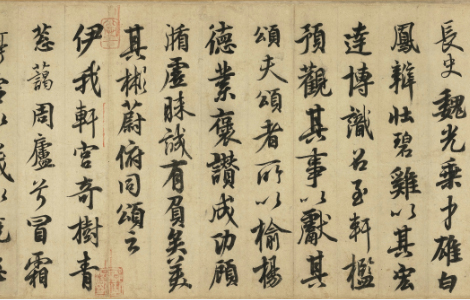 長史魏光乘才雄白
鳳辯壯碧雞以其宏
達博識召至軒檻
預觀其事以獻其
頌夫頌者所以揄揚
德業褒讚成功顧
循虛昧誠有負矣美
其彬蔚俯同頌云
伊我軒宮奇樹青
蔥藹周廬兮冒霜